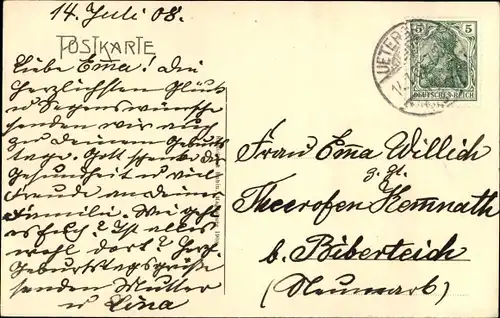 14. Juli 08.
POSTKARTE
Liebe Emma! Die
herzlichsten Glück
u Segenswünsche
senden wir auch
zu deinem Geburts
tage. Gott schenke dir
Gesundheit u viel
Freude an deiner
Familie. Wie geht
es Euch? Ist alles
wohl dort? Herz.
Geburtstagsgrüße
senden Mutter
u Lina
5 5
DEUTSCHES REICH
UETER
Frau Emma Willich
z. Zt.
Theerofen Kemnath
b. Biberteich
(Neumark)